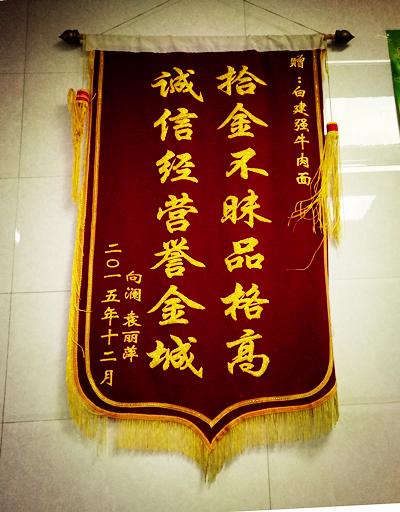 赠：白建强牛肉面
拾金不昧品格高
诚信经营誉金城
向澜 袁丽萍
二〇一五年十二月